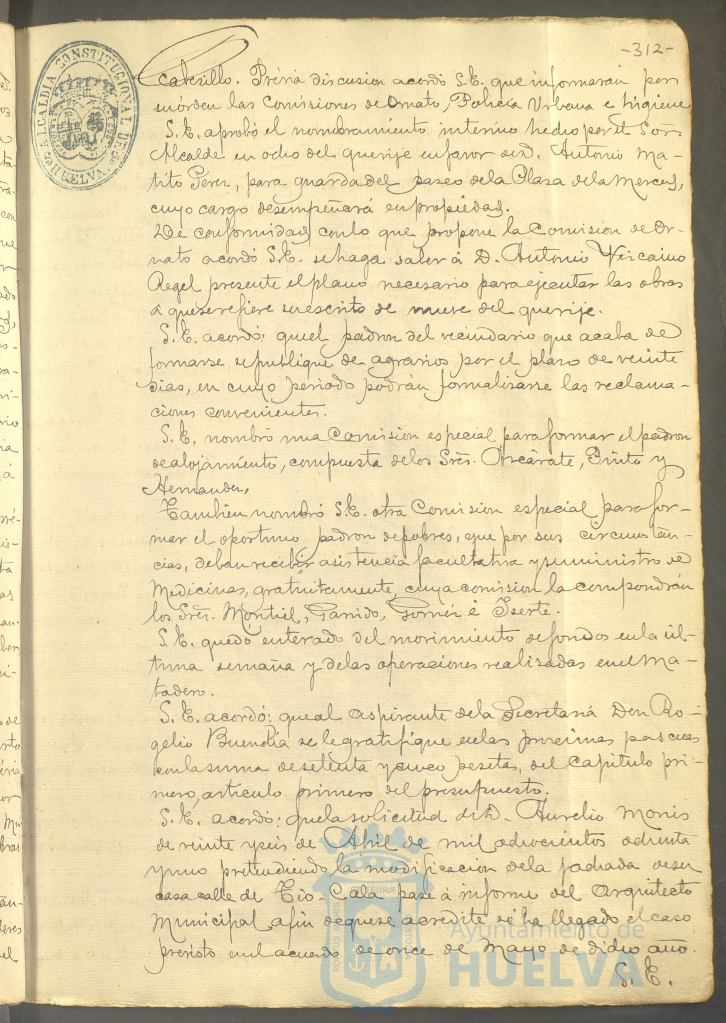 -312-
ALCALDIA CONSTITUCIONAL DE HUELVA
caberillo. Prévia discusion acordó S.E. que informaran por
su órden las Comisiones de Ornato, Policía Urbana e higiene
S.E. aprobó el nombramiento interino hecho por el Sor.
Alcalde en ocho del que rije en favor de D. Antonio Ma-
tito Perez, para guarda del paseo de la Plaza de la Merced,
cuyo cargo desempeñará en propiedad.
De conformidad con lo que propone la Comision de Or-
nato acordó S.E. se haga saber á D. Antonio Vizcaino
Regel presente el plano necesario para ejecutar las obras
á que se refiere su escrito de nueve del que rije.
S.E. acordó: que el padron del vecindario que acaba de
formarse se publique de agravios por el plazo de veinte
dias, en cuyo periodo podrán formalizarse las reclama-
ciones convenientes.
S.E. nombró una Comisión especial para formar el padron
de alojamiento, compuesta de los Sres. Azcárate, Pinto y
Hernandez,
Tambien nombró S.E. otra Comision especial para for-
mar el oportuno padron de pobres, que por sus circunstan-
cias, deban recibir asistencia facultativa y suministro de
Medicinas, gratuitamente, cuya comision la compondrán
los Sres. Montiel, Garrido, é Iserte.
S.E. quedó enterado del movimiento de fondos en la úl-
tima semana y de las operaciones realizadas en el Ma-
tadero.
S.E. acordó: que al aspirante de la Secretaría Don Ro-
gelio Buendia se le gratifique en las proximas pascuas
con la suma de setenta y cinco pesetas, del capitulo pri-
mero, artículo primero del presupuesto.
S.E. acordó: que la solicitud de D. Aurelio Monis
de veinte y seis de Abril de mil ochocientos ochenta
y uno pretendiendo la modificacion de la fachada de su
casa calle de Tio-Cala pase á informe del Arquitecto
Municipal afin de que se acredite si ha llegado el caso
previsto en el acuerdo de once de Mayo de dicho año.
S.E.
Ayuntamiento de
HUELVA